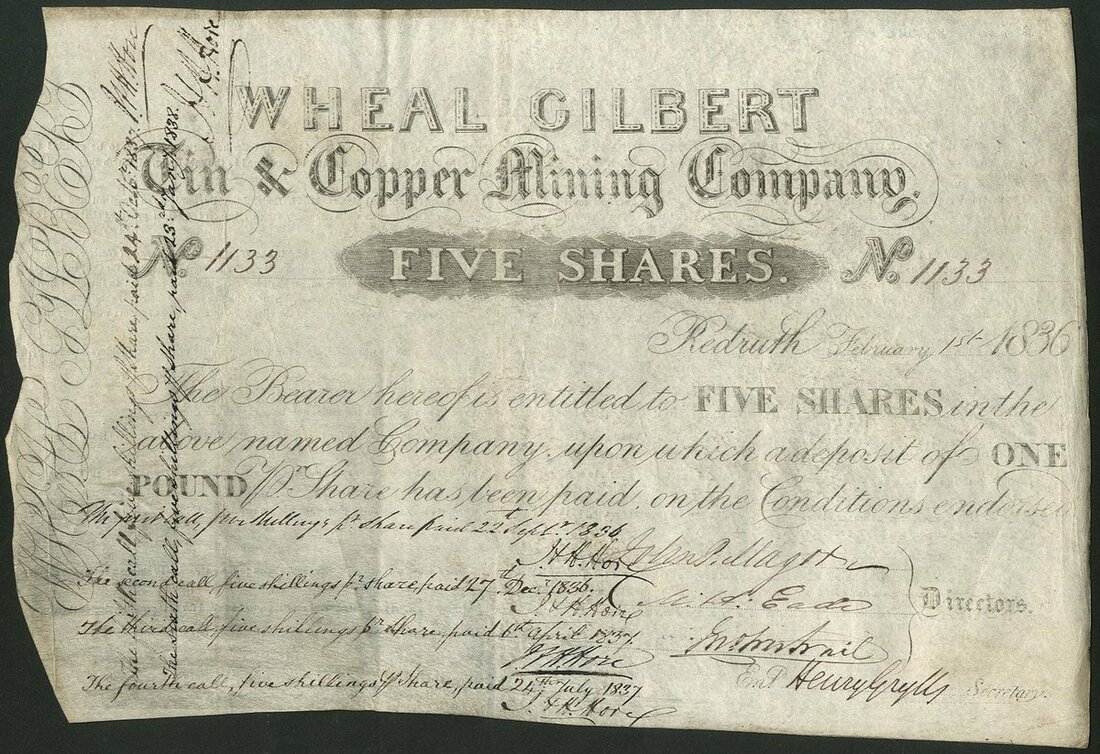 WHEAL GILBERT
Tin & Copper Mining Company.
No. 1133 FIVE SHARES. No. 1133
Redruth February 1st 1836
The Bearer hereof is entitled to FIVE SHARES in the
above named Company, upon which a deposit of ONE
POUND pr. Share has been paid, on the Conditions endorsed
The first call, five shillings pr. share paid 22d Septr. 1836
J H Hore
The second call, five shillings pr. share, paid 27th Decr. 1836.
J H Hore
The third call, five shillings pr. share, paid 6th April 1837
J H Hore
The fourth call, five shillings pr. share, paid 24th July 1837
J H Hore
John
M. A. Eade
Directors.
Henry Grylls Secretary.
The fifth call, five shillings pr. share, paid 24th Decbr. 1837. J H Hore
The sixth call, five shillings pr. share, paid 23rd Jany. 1838. J H Hore
WHEAL GILBERT